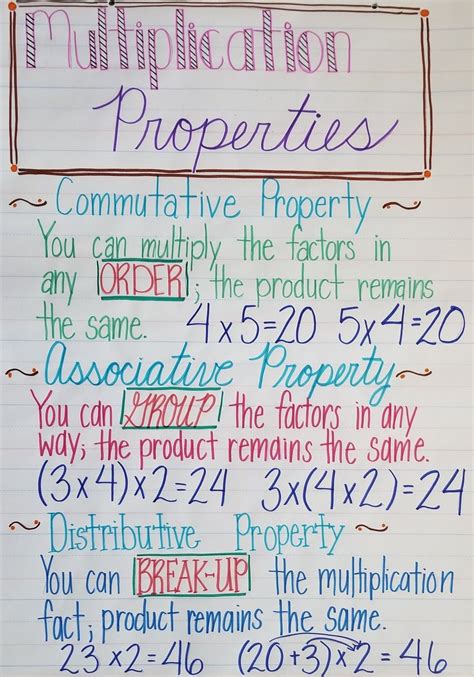 Multiplication
Properties
~ Commutative Property ~
You can multiply the factors in
any ORDER; the product remains
the same. 4x5=20 5x4=20
~ Associative Property ~
You can GROUP the factors in any
way; the product remains the same.
(3x4)x2=24 3x(4x2)=24
~ Distributive Property ~
You can BREAK-UP the multiplication
fact; product remains the same.
23x2=46 (20+3)x2=46